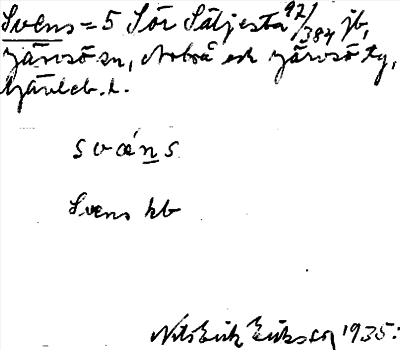 Svens = 5 Sör Sätjesta 92/384 jb,
Järvsö sn, Norra och Järvsö tg,
Gävleb. l.
svæ´ns
Svens kb
Nils Erik Eriksson 1935.